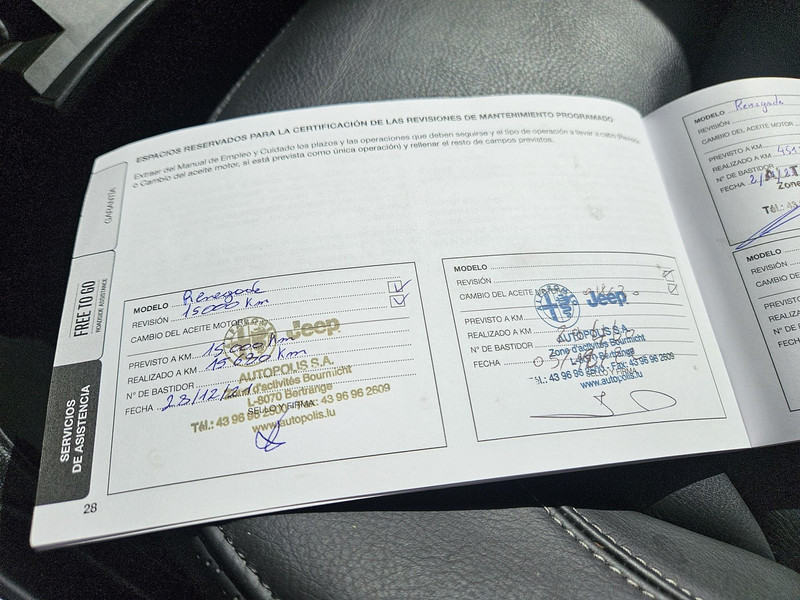 ESPACIOS RESERVADOS PARA LA CERTIFICACIÓN DE LAS REVISIONES DE MANTENIMIENTO PROGRAMADO
Extraer del Manual de Empleo y Cuidado los plazos y las operaciones que deben seguirse y el tipo de operación a llevar a cabo (Revisión
o Cambio del aceite motor, si está prevista como única operación) y rellenar el resto de campos previstos.
GARANTÍA
FREE TO GO
ROADSIDE ASSISTANCE
SERVICIOS
DE ASISTENCIA
MODELO Renegade
REVISIÓN 15000 Km
CAMBIO DEL ACEITE MOTOR
PREVISTO A KM 15000 Km
REALIZADO A KM 15680 Km
N° DE BASTIDOR
FECHA 23/12/21
SELLO Y FIRMA
Jeep
AUTOPOLIS S.A.
Zone d'activités Bourmicht
L-8070 Bertrange
Tél.: 43 96 96 2500 Fax: 43 96 96 2609
www.autopolis.lu
MODELO
REVISIÓN
CAMBIO DEL ACEITE MOTOR
PREVISTO A KM
REALIZADO A KM
N° DE BASTIDOR
FECHA
Jeep
AUTOPOLIS S.A.
Zone d'activités Bourmicht
Bertrange
Fax: 43 96 96 2609
www.autopolis.lu
28
MODELO Renegade
REVISIÓN
CAMBIO DEL ACEITE MOTOR
PREVISTO A KM
REALIZADO A KM
N° DE BASTIDOR
FECHA
Zone
Tél.: 43
MODELO
REVISIÓN
CAMBIO DEL
PREVISTO
REALIZADO
N° DE BAS
FECHA